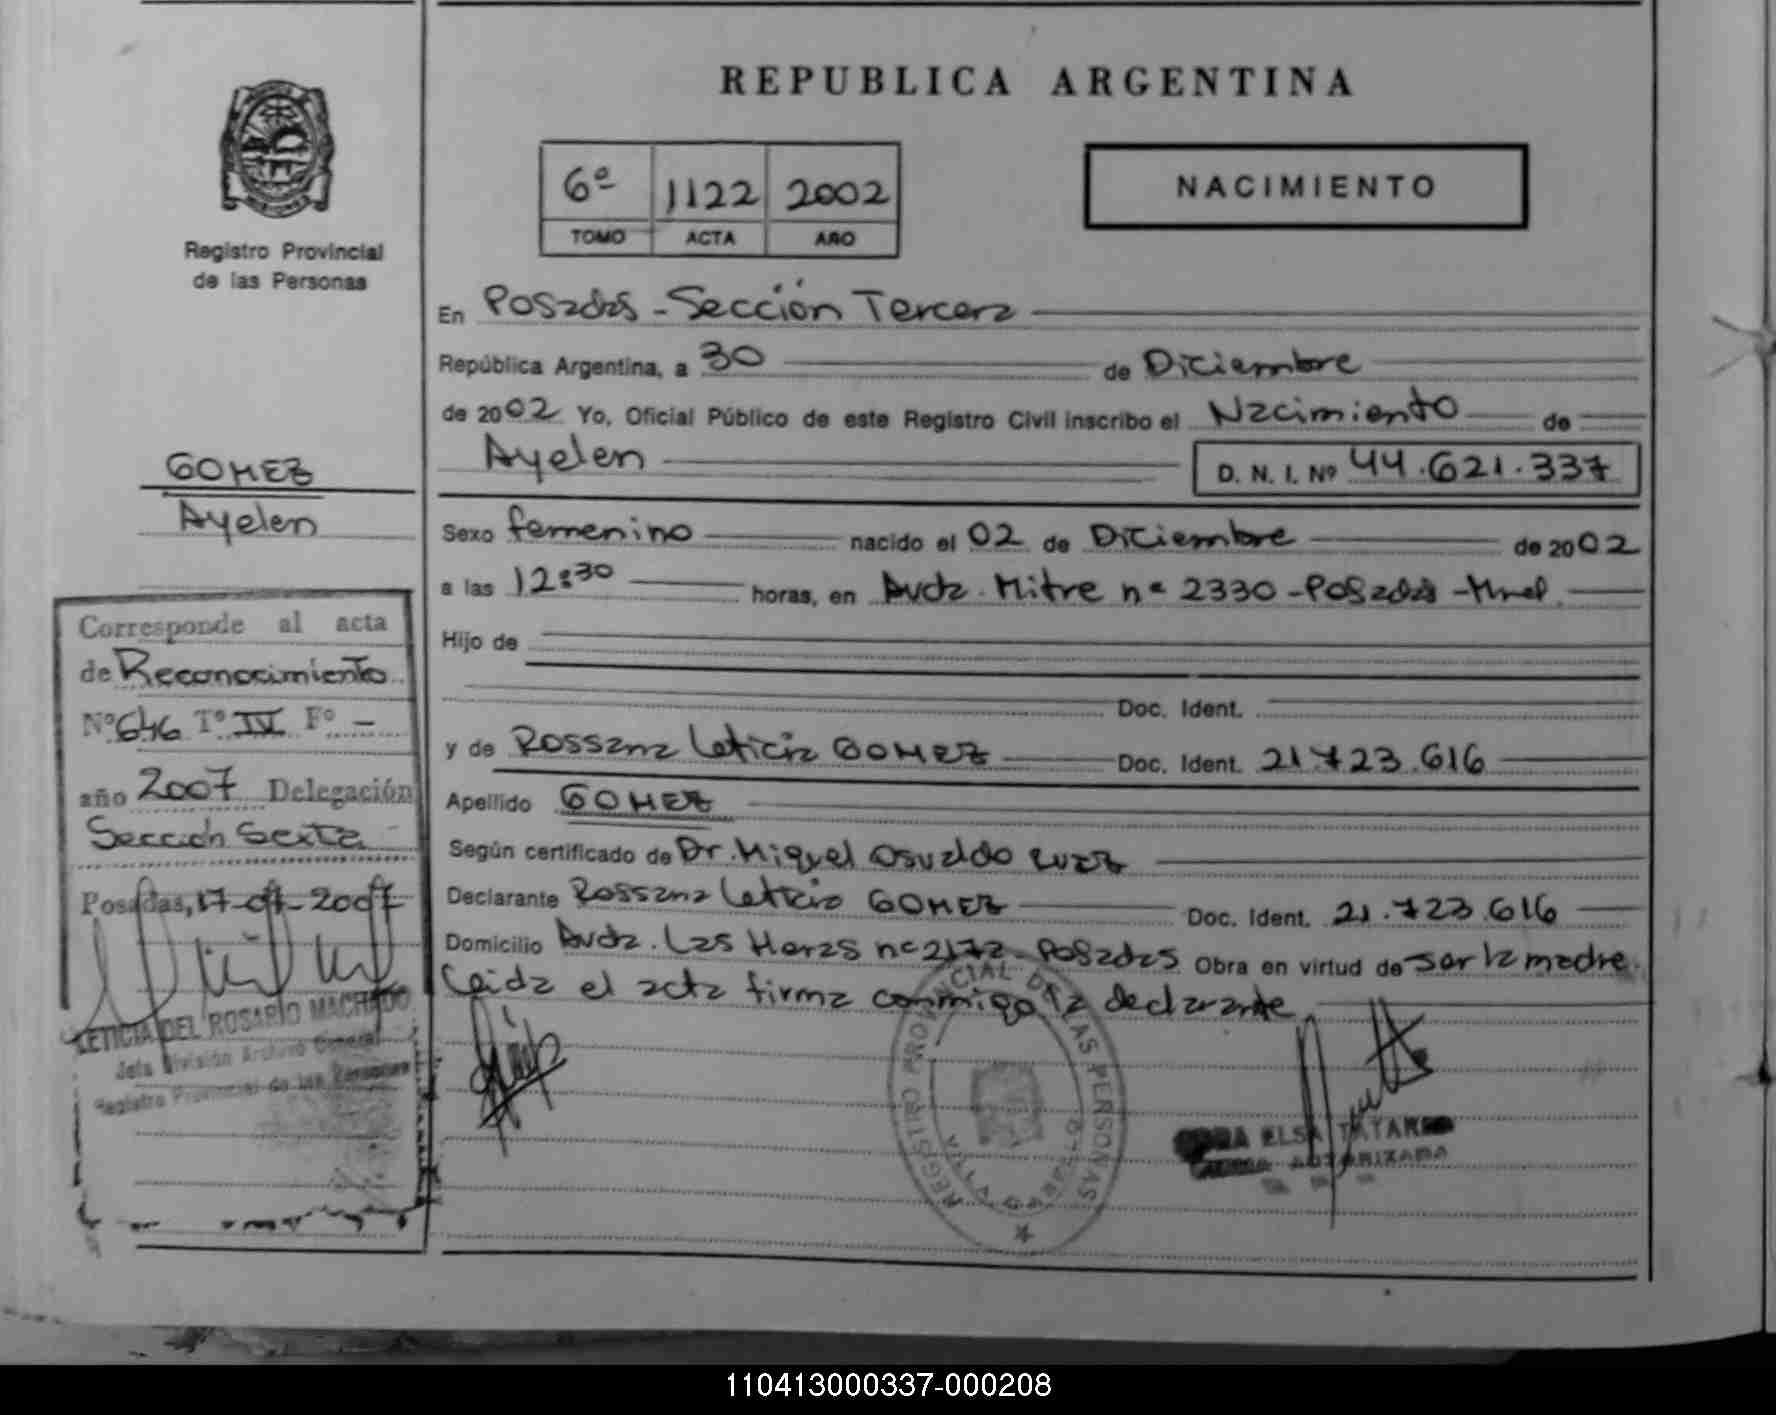 REPUBLICA ARGENTINA
Registro Provincial
de las Personas
6º 1122 2002
TOMO ACTA AÑO
NACIMIENTO
En Posadas - Sección Tercera
República Argentina, a 30 de Diciembre
de 2002 Yo, Oficial Público de este Registro Civil inscribo el Nacimiento de
Ayelen D. N. I. Nº 44.621.337
GOMEZ
Ayelen
Sexo femenino nacido el 02 de Diciembre de 2002
a las 12:30 horas, en Avda. Mitre nº 2330 - Posadas - Mnes.
Hijo de
Doc. Ident.
y de Rossana Leticia GOMEZ Doc. Ident. 21.723.616
Apellido GOMEZ
Según certificado de Dr. Miguel Osvaldo
Declarante Rossana Leticia GOMEZ Doc. Ident. 21.723.616
Domicilio Avda. Las Heras nº 2172 - Posadas Obra en virtud de ser la madre.
Leida el acta firma conmigo la declarante
Corresponde al acta
de Reconocimiento
Nº 646 Tº IV Fº -
año 2007 Delegación
Sección Sexta
Posadas, 17-07-2007
LETICIA DEL ROSARIO MACHADO
Jefa División Archivo General
Registro Provincial de las Personas
REGISTRO PROVINCIAL DE LAS PERSONAS
ELSA
AUTORIZADA
110413000337-000208